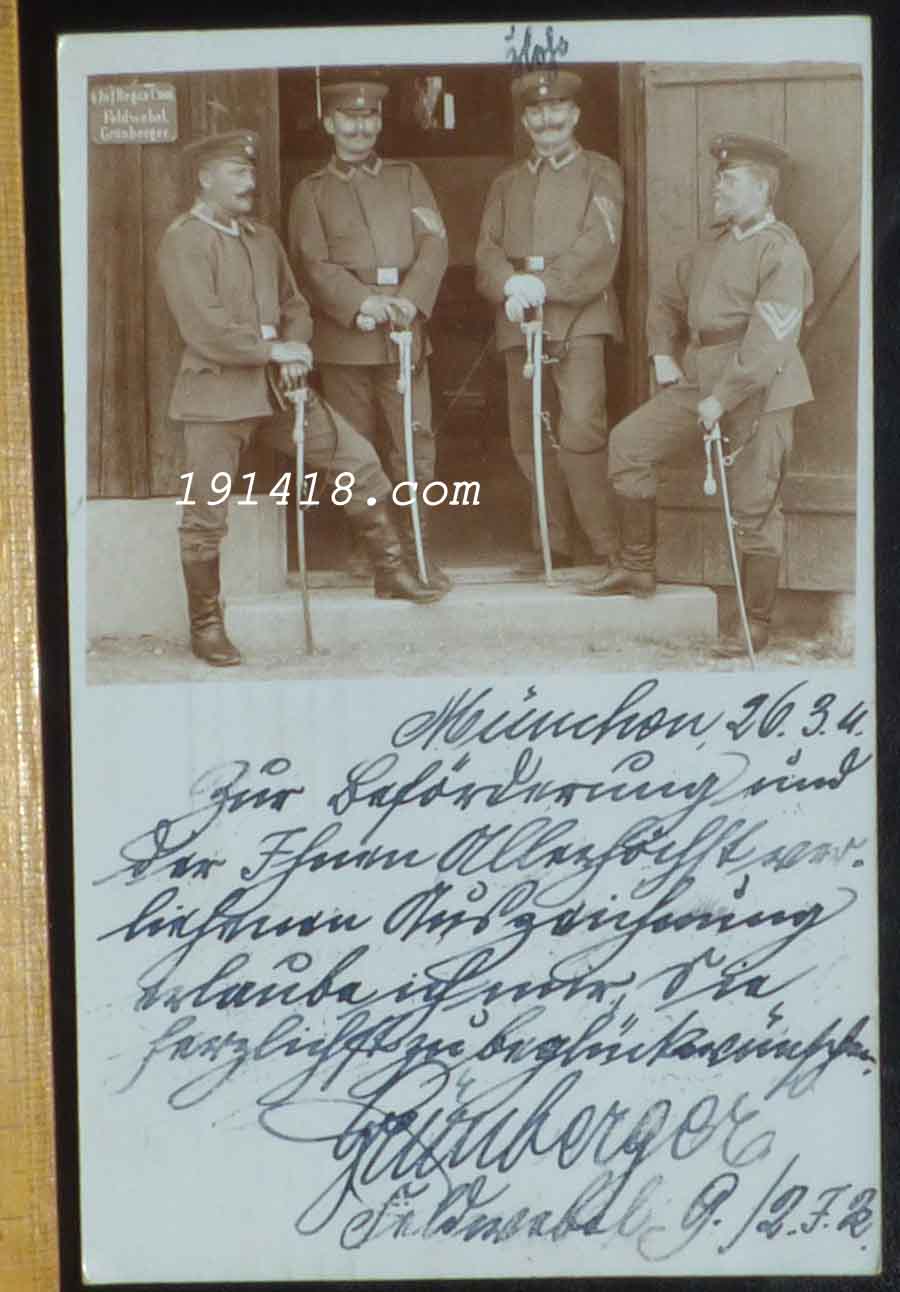 Feldwebel
Grünberger.
191418.com
München, 26.3.11.
Zur Beförderung und
der Ihnen Allerhöchst ver-
liehenen Auszeichnung
erlaube ich mir, Sie
herzlichst zu beglückwünschen.
Grünberger
Feldwebel